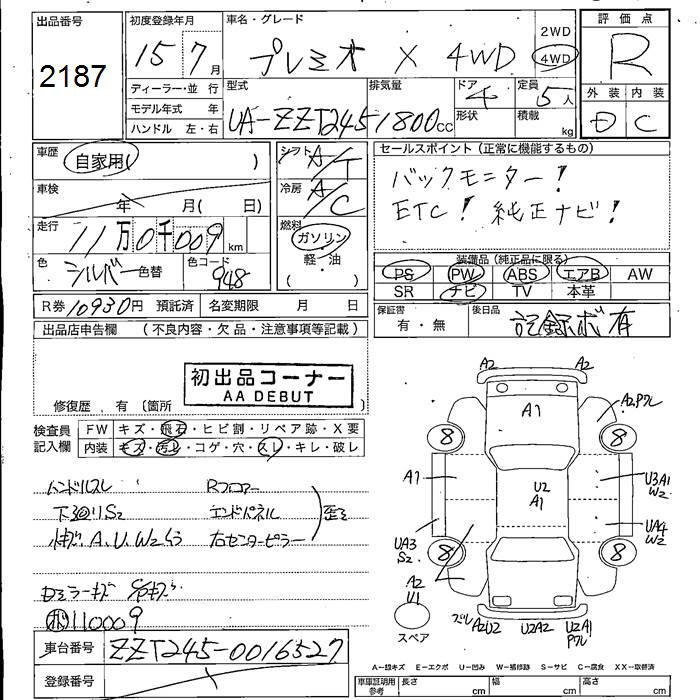 出品番号
2187
初度登録年月
15 7月
車名・グレード
プレミオ X 4WD
2WD
4WD
評価点
R
ディーラー・並 行
モデル年式 年
ハンドル 左・右
型式
UA-ZZT245
排気量
1800cc
ドア
4
形状
定員
5人
積載
kg
外装 内装
D C
車歴
自家用( )
車検
年 月( 日)
走行
11万0千009km
色
シルバー 色替
色コード
948
シフト
A/T
冷房
A/C
燃料
ガソリン
軽・油
( )
セールスポイント(正常に機能するもの)
バックモニター!
ETC! 純正ナビ!
装備品(純正品に限る)
PS PW ABS エアB AW
SR ナビ TV 本革
R券 10930円 預託済 名変期限 月 日
保証書
有・無
後日品
記録ボ有
出品店申告欄 (不良内容・欠品・注意事項等記載)
初出品コーナー
AA DEBUT
修復歴、有〔箇所
検査員
記入欄
FW キズ・飛石・ヒビ割・リペア跡・X要
内装 キズ・汚レ・コゲ・穴・スレ・キレ・破レ
ハンドルスレ Rフロアー
下廻りS2 エンドパネル 歪み
A、U、W2 右センターピラー
ミラーキズ
110009
車台番号
ZZT245-0016527
登録番号
A2 A2
A1
A2
8 8
A1
U2
A1
U3A1
W2
UA3
S2
UA4
W2
8 8
A2
U1
スペア
A2U2 U2A2 U2A1
A−線キズ E−エクボ U−凹み W−補修跡 S−サビ C−腐食 XX−取替済
車庫証明用
参考
長さ cm 幅 cm 高さ cm